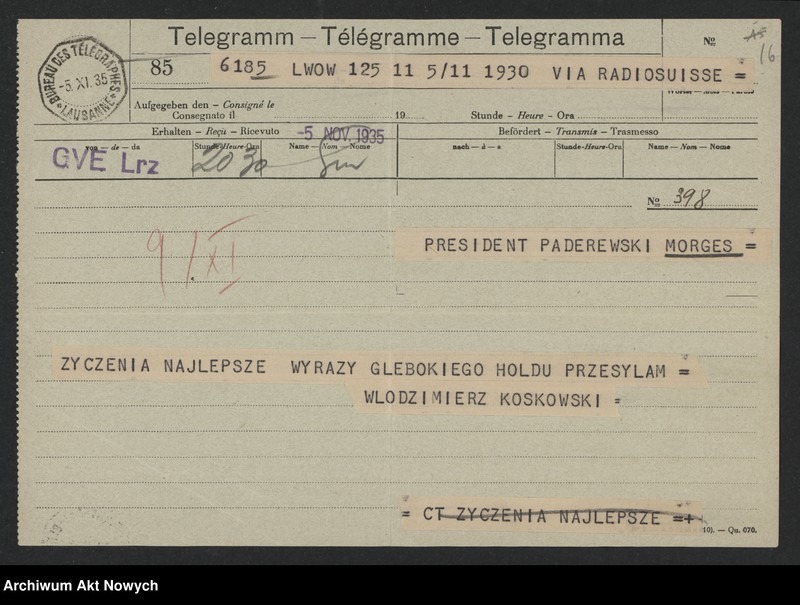 Telegramm – Télégramme – Telegramma
№
16
BUREAU DES TÉLÉGRAPHES
-5. XI. 35
* LAUSANNE *
85 6185 LWOW 125 11 5/11 1930 VIA RADIOSUISSE =
Aufgegeben den – Consigné le
Consegnato il 19 Stunde – Heure – Ora
Erhalten – Reçu – Ricevuto -5 NOV. 1935 Befördert – Transmis – Trasmesso
von – de – da Stunde-Heure-Ora Name – Nom – Nome nach – à – a Stunde-Heure-Ora Name – Nom – Nome
GVE Lrz 20 30
№ 398
9/XI
PRESIDENT PADEREWSKI MORGES =
ZYCZENIA NAJLEPSZE WYRAZY GLEBOKIEGO HOLDU PRZESYLAM =
WLODZIMIERZ KOSKOWSKI =
= CT ZYCZENIA NAJLEPSZE =+
10). — Qu. 070.
Archiwum Akt Nowych